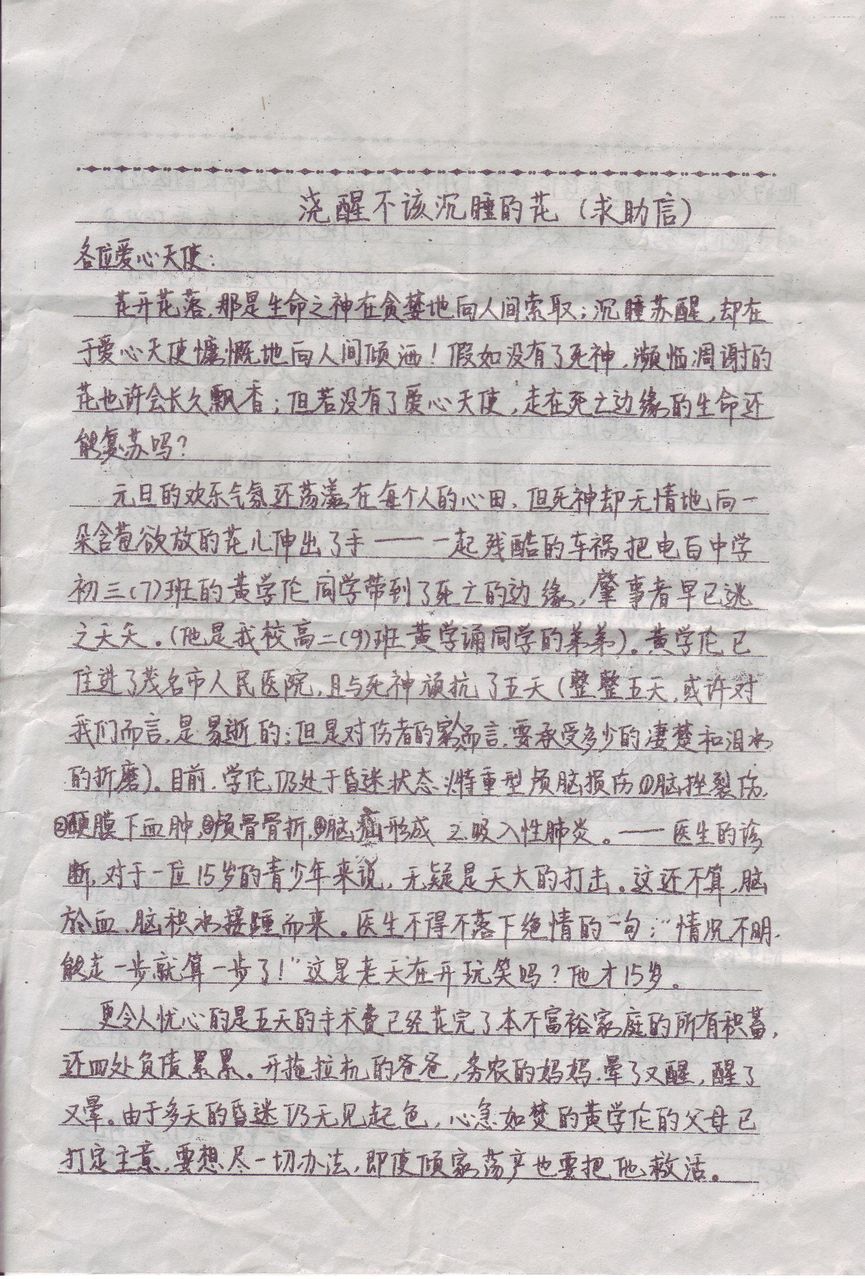 浇醒不该沉睡的花（求助信）
各位爱心天使：
花开花落，那是生命之神在贪婪地向人间索取；沉睡苏醒，却在
于爱心天使慷慨地向人间倾洒！假如没有了死神，濒临凋谢的
花也许会长久飘香；但若没有了爱心天使，走在死亡边缘的生命还
能复苏吗？
元旦的欢乐气氛还荡漾在每个人的心田，但死神却无情地向一
朵含苞欲放的花儿伸出了手——一起残酷的车祸把电白中学
初三（7）班的黄学伦同学带到了死亡的边缘，肇事者早已逃
之夭夭。（他是我校高二（9）班黄学诵同学的弟弟）。黄学伦已
住进了茂名市人民医院，且与死神顽抗了五天（整整五天，或许对
我们而言，是易逝的；但是对伤者的家人而言，要承受多少的凄楚和泪水
的折磨）。目前，学伦仍处于昏迷状态：1.特重型颅脑损伤①脑挫裂伤
②硬膜下血肿，③颅骨骨折，④脑疝形成 2.吸入性肺炎。——医生的诊
断，对于一位15岁的青少年来说，无疑是天大的打击。这还不算，脑
淤血，脑积水接踵而来。医生不得不落下绝情的一句：“情况不明，
能走一步就算一步了！”这是老天在开玩笑吗？他才15岁。
更令人忧心的是五天的手术费已经花完了本不富裕家庭的所有积蓄，
还四处负债累累。开拖拉机的爸爸，务农的妈妈，晕了又醒，醒了
又晕。由于多天的昏迷仍无见起色，心急如焚的黄学伦的父母已
打定主意，要想尽一切办法，即使倾家荡产也要把他救活。